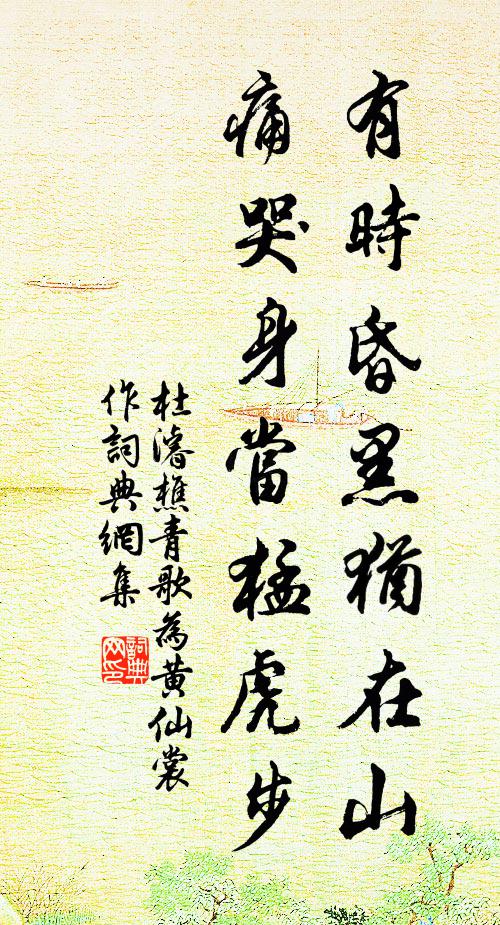 有時昏黑猶在山
痛哭身當猛虎步
杜濬樵青歌為黄仙裳
作詞典網集
詞典
网印